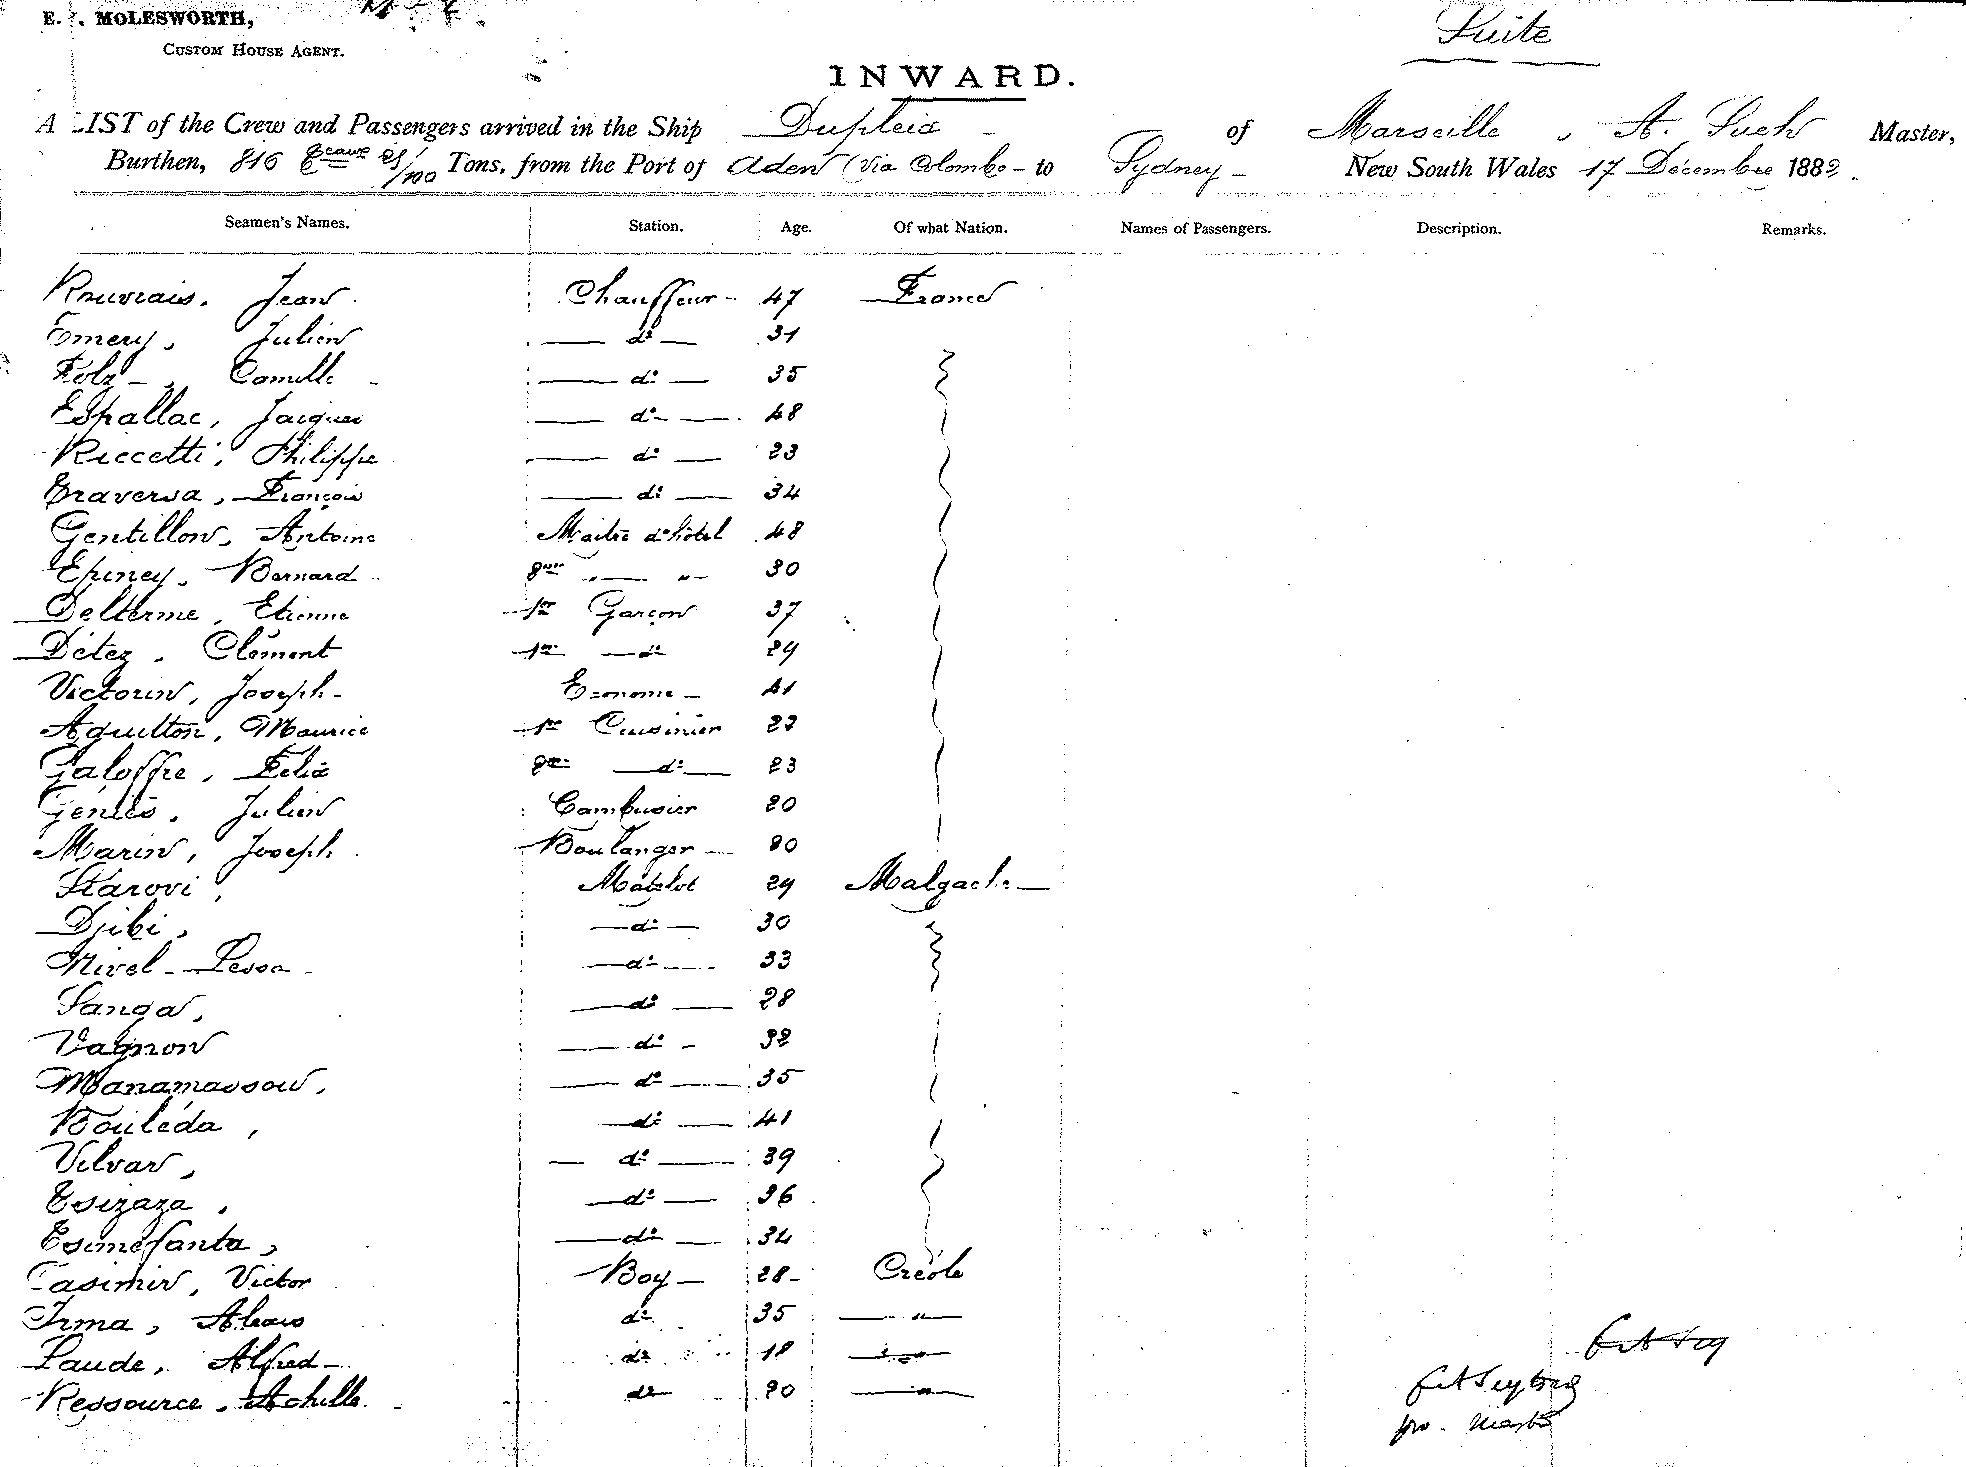 E. . MOLESWORTH,
CUSTOM HOUSE AGENT.
Suite
INWARD.
A LIST of the Crew and Passengers arrived in the Ship Dupleix of Marseille, A. Master,
Burthen, 816 Tons, from the Port of Aden (via Colombo - to Sydney - New South Wales 17 Décembre 1882.
Seamen's Names. Station. Age. Of what Nation. Names of Passengers. Description. Remarks.
Rouvrais. Jean Chauffeur - 47 France
Emery, Julien do 31
Folz -, Camille do 35
Espallac, Jacques do 48
Riccetti, Philippe do 23
Traversa, François do 34
Gentillon, Antoine Maitre d'hôtel 48
Epiney, Bernard 2me " " 30
Delterme, Etienne 1er Garçon 37
Détez, Clément 1er do 29
Victorin, Joseph - Econome - 41
Aquilton, Maurice 1er Cuisinier 22
Galoffre, Felix 2me do 23
Géniès, Julien Cambusier 20
Marin, Joseph Boulanger 20
Starovi, Matelot 29 Malgache
Djibi, do 30
Nivel - Lessa do 33
Sanga, do 28
Vagnon do 32
Manamassou, do 35
Bouléda, do 41
Vilvar, do 39
Tsizaza, do 36
Tsimefanta, do 34
Casimir, Victor Boy - 28 - Créole
Irma, Alexis do 35 "
Laude, Alfred do 18 "
Ressource, Achille do 20 "
pro. Master